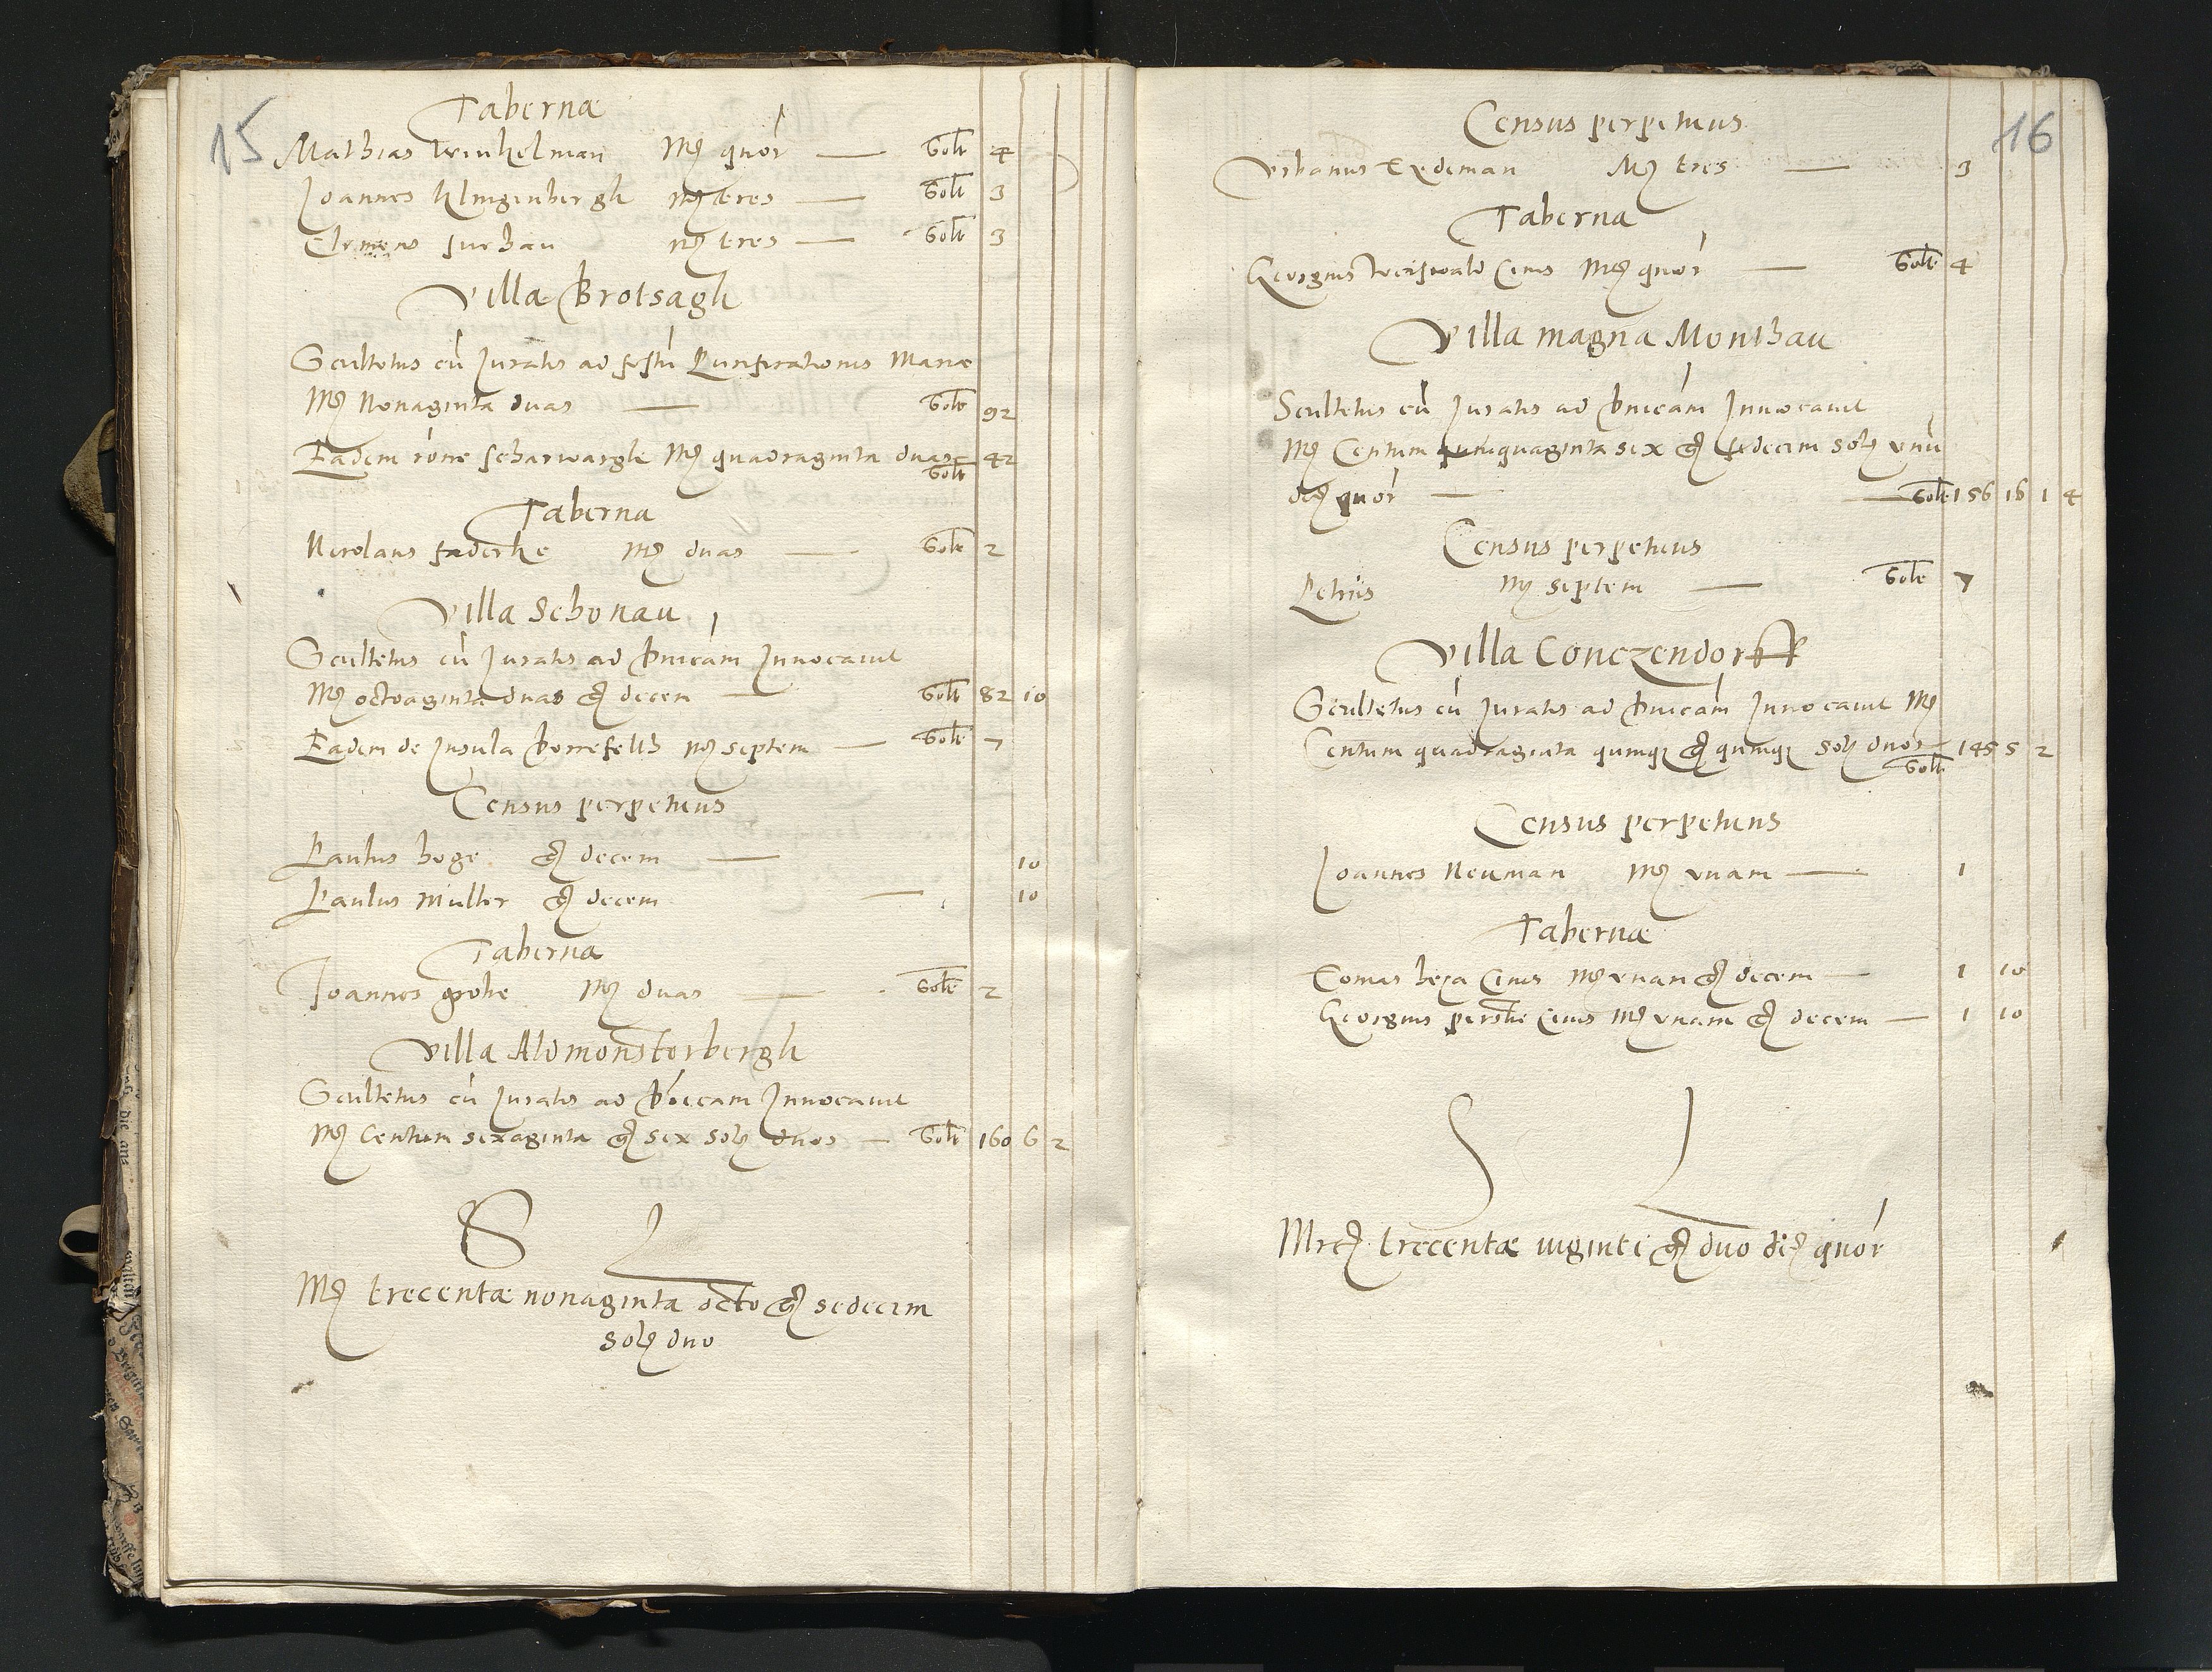 15
Tabernæ
Mathias Winkelman Mꝶ quor — Solt 4
Joannes Klingenbergh Mꝶ tres — Solt 3
Clemens Surhau Mꝶ tres — Solt 3
Villa Brotsagh
Scultetus cū Juratis ad festū Purificationis Mariæ
Mꝶ Nonaginta duas — Solt 92
Eadem rōne scharwargk Mꝶ quadraginta duas — Solt 42
Taberna
Nicolaus faderke Mꝶ duas — Solt 2
Villa Schonau
Scultetus cū Juratis ad Dnicam Innocauit
Mꝶ octoaginta duas gꝶ decem — Solt 82 10
Eadem de Insula septem — Solt 7
Census perpetuus
Paulus hoge gꝶ decem — 10
Paulus Muller gꝶ decem — 10
Taberna
Joannes grohe Mꝶ duas — Solt 2
Villa Aldmonsterbergh
Scultetus cū Juratis ad Dnicam Innocauit
Mꝶ Centum sexaginta gꝶ sex solꝶ duos — Solt 160 6 2
S L
Mꝶ trecentæ nonaginta octo gꝶ sedecim
solꝶ duo
16
Census perpetuus
Urbanus Erdeman Mꝶ tres — 3
Taberna
Georgius Mꝶ quor — Solt 4
Villa magna Monthau
Scultetus cū Juratis ad Dnicam Innocauit
Mꝶ Centum quinquaginta sex gꝶ sedecim solꝶ vnū
deꝶ quor — Solt 156 16 1 4
Census perpetuus
Petrus Mꝶ septem — Solt 7
Villa Conczendorff
Scultetus cū Juratis ad Dnicam Innocauit Mꝶ
Centum quadraginta quinqꝫ gꝶ quinqꝫ solꝶ duos — Solt 145 5 2
Census perpetuus
Joannes Neuman Mꝶ vnam — 1
Tabernæ
Tomas heza Ciuis Mꝶ vnam gꝶ decem — 1 10
Georgius perske Ciuis Mꝶ vnam gꝶ decem — 1 10
S L
Mrcꝶ trecentæ viginti gꝶ duo deꝶ quor